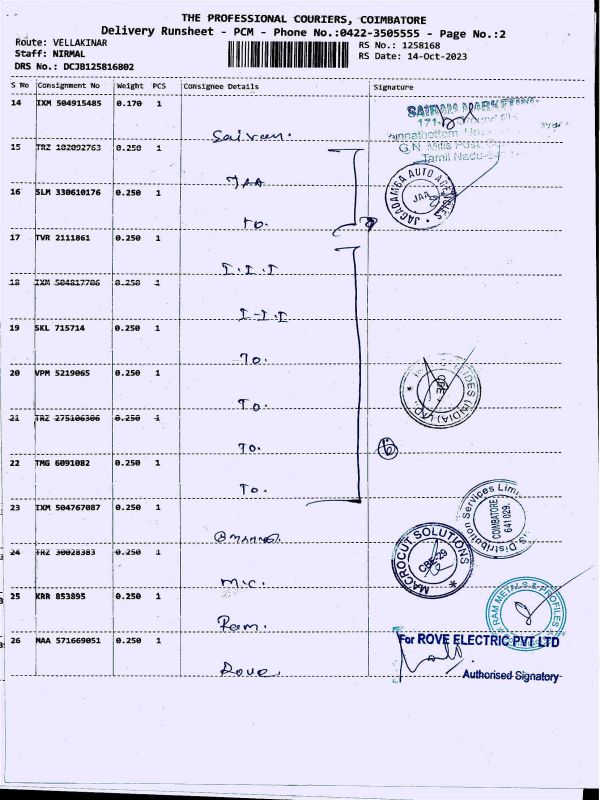 THE PROFESSIONAL COURIERS, COIMBATORE
Delivery Runsheet - PCM - Phone No.:0422-3505555 - Page No.:2
Route: VELLAKINAR
Staff: NIRMAL
DRS No.: DCJB125816802
RS No.: 1258168
RS Date: 14-Oct-2023
S No Consignment No Weight PCS Consignee Details Signature
14 IXM 504915485 0.170 1
SAIRAM MARKETING
171-
G.N. Mills Post
Tamil Nadu-64
Sairam.
15 TRZ 102092763 0.250 1
JAA
JAGADAMBA AUTO AGENCIES
JAA
16 SLM 330610176 0.250 1
To.
17 TVR 2111861 0.250 1
I.I.I
18 IXM 504817706 0.250 1
I-I.I
19 SKL 715714 0.250 1
To.
20 VPM 5219065 0.250 1
To.
(INDIA) LTD
CBE
21 TRZ 275106306 0.250 1
To.
6
22 TMG 6091082 0.250 1
To.
23 IXM 504767087 0.250 1
Distribution Services Limi
COIMBATORE
641 029.
24 TRZ 30028383 0.250 1
M.C.
MACROCUT SOLUTIONS
CBE-29
25 KRR 853895 0.250 1
Ram.
RAM METALS & PROFILES
26 MAA 571669051 0.250 1
Rove.
For ROVE ELECTRIC PVT LTD
Authorised Signatory